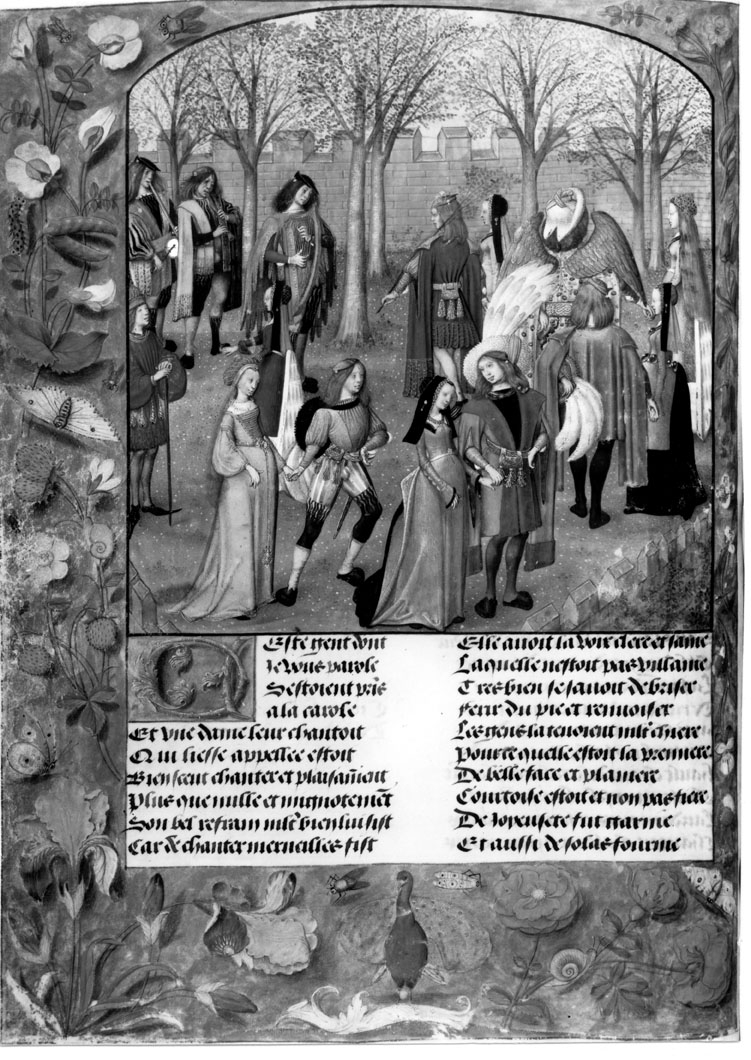 Ceste gent dont
Ie vous parole
Sestoient pris
a la carole
Et vne dame leur chantoit
Qui liesse appellee estoit
Bien sceut chanter et plaisam̃ent
Plus que nulle et mignotemẽt
Son bel refrain mlt bien lui sist
Car de chanter merueilles fist
Elle auoit la voix clere et saine
Laquelle nestoit pas villaine
Tres bien se sauoit debriser
Ferir du pie et renuoiser
Les gens la tenoient mlt chiere
Pource quelle estoit la premiere
De belle face et planiere
Courtoise estoit et non pas fiere
De ioyeusete fut garnie
Et aussi de solas fournie